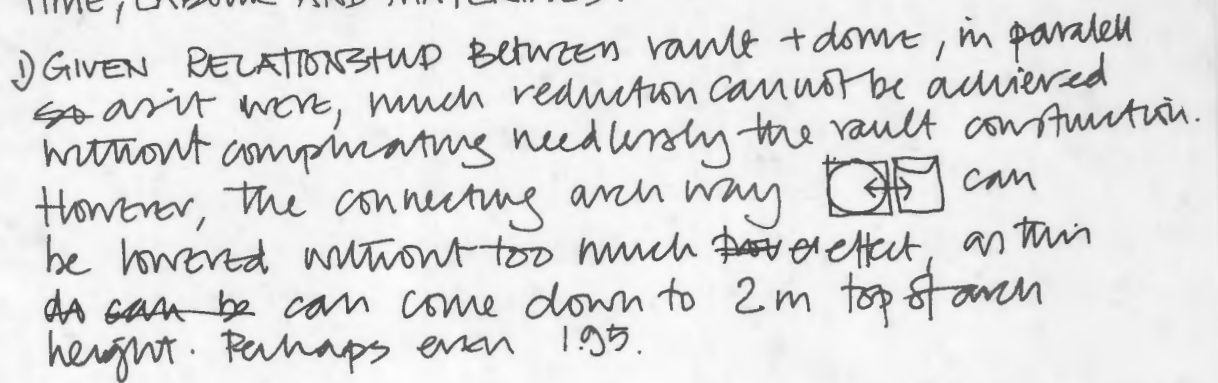 TIME, LABOUR AND MATERIALS.
1) GIVEN RELATIONSHIP BETWEEN vault + dome, in paralell
so as it were, much reduction cannot be achieved
without complicating needlessly the vault construction.
However, the connecting arch way can
be lowered without too much effect, as this
as can be can come down to 2m top of arch
height. Perhaps even 1.95.